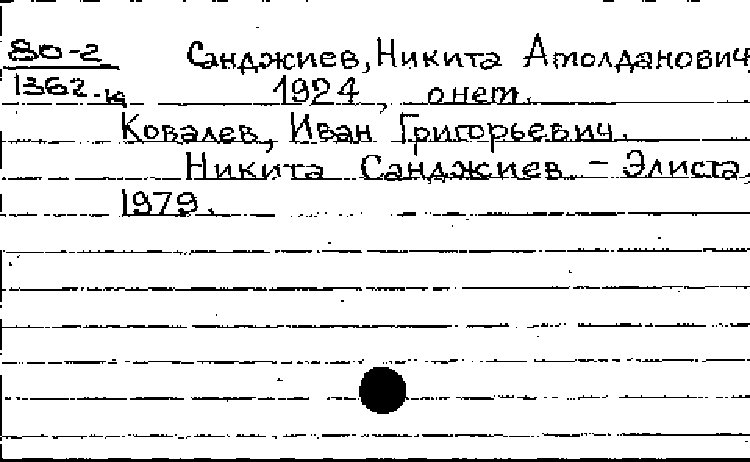 80-2 Санджиев, Никита Амолданович
1362-к 1924, о нем.
Ковалев, Иван Григорьевич.
Никита Санджиев. - Элиста,
1979.